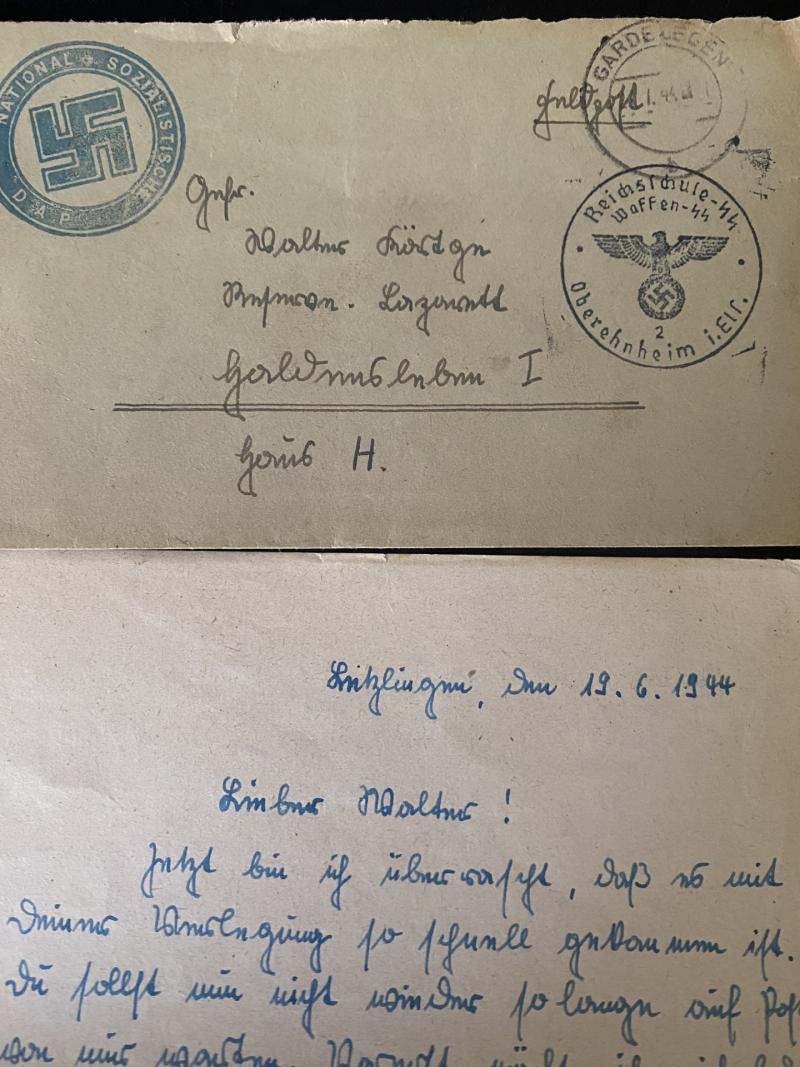 NATIONAL SOZIALISTISCHE
D A P
GARDELEGEN
Feldpost
Reichsschule-SS
Waffen-SS
2
Oberehnheim i. Els.
Gefr.
Walter
Reserve. Lazarett
Haldensleben I
Haus H.
Letzlingen, den 19. 6. 1944
Lieber Walter!
Jetzt bin ich überrascht, daß es mit
Deiner Verlegung so schnell gekommen ist.
Du sollst nun nicht wieder so lange auf
von mir warten.